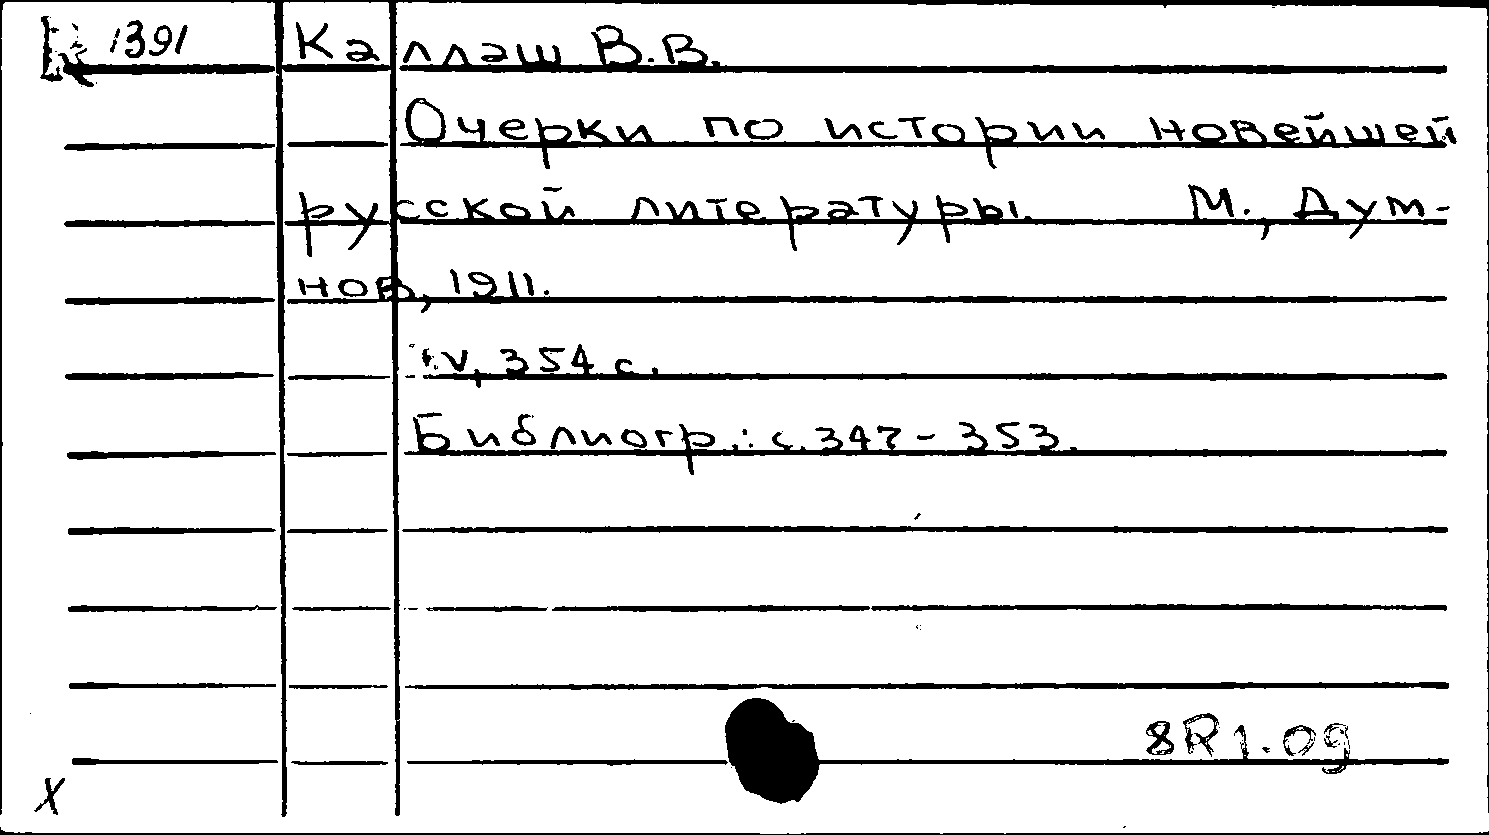 1391 Каллаш В.В.
Очерки по истории новейшей
русской литературы. М., Дум-
нов, 1911.
IV, 354 с.
Библиогр.: с. 347-353.
8R1.09
X